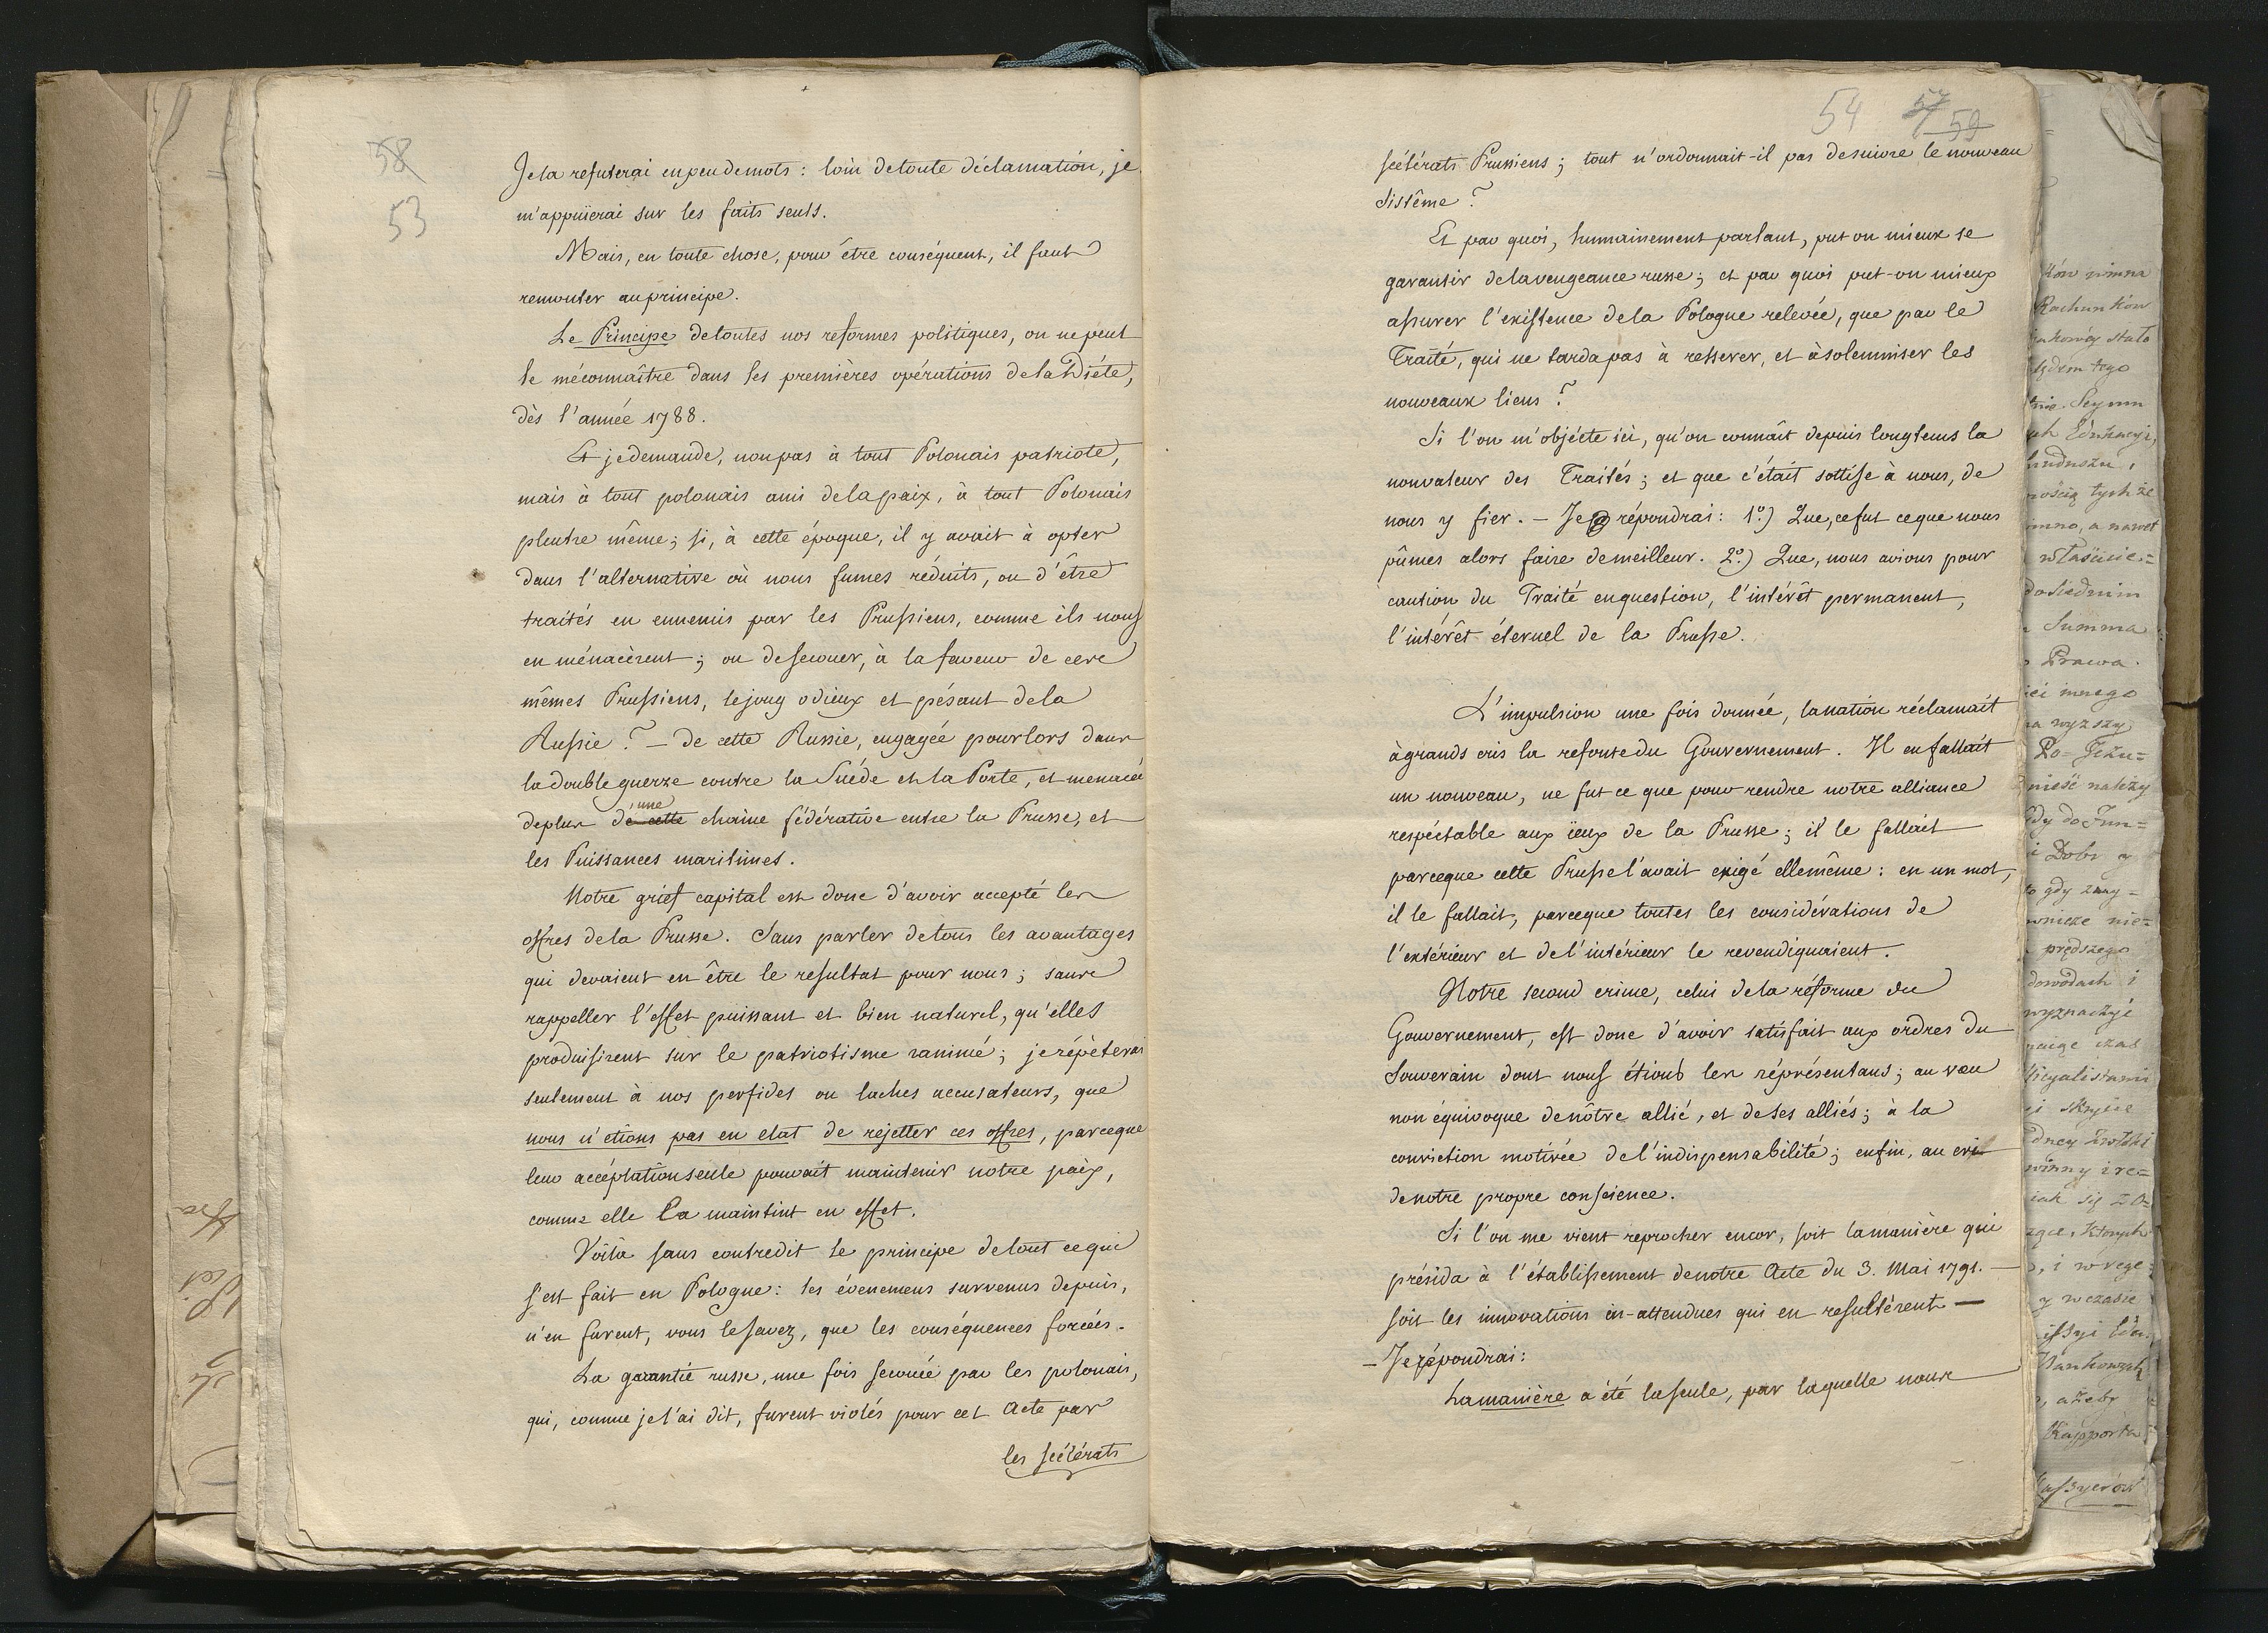 58
53
Je la refuterai en peu de mots : loin de toute déclamation, je
m'appuïerai sur les faits seuls.
Mais, en toute chose, pour être conséquent, il faut
remonter au principe.
Le Principe de toutes nos réformes politiques, on ne peut
le méconnaître dans les premières opérations de la Diéte,
dès l'année 1788.
Et je demande, non pas à tout Polonais patriote,
mais à tout polonais ami de la paix, à tout Polonais
pleutre même ; si, à cette époque, il y avait à opter
dans l'alternative où nous fumes réduits, ou d'être
traités en ennemis par les Prussiens, comme ils nous
en ménacèrent ; ou de secouer, à la faveur de ces
mêmes Prussiens, le joug odieux et pésant de la
Russie ? — de cette Russie, engagée pour lors dans
la double guerre contre la Suéde et la Porte, et menacée
de plus de cette d'une chaine fédérative entre la Prusse, et
les Puissances maritimes.
Notre grief capital est donc d'avoir accepté les
offres de la Prusse. Sans parler de tous les avantages
qui devaient en être le resultat pour nous ; sans
rappeller l'effet puissant et bien naturel, qu'elles
produisirent sur le patriotisme ranimé ; je répéterai
seulement à nos perfides ou laches accusateurs, que
nous n'etions pas en etat de rejetter ces offres, parceque
leur accéptation seule pouvait maintenir notre paix,
comme elle la maintint en effet.
Voilà sans contredit le principe de tout ce qui
s'est fait en Pologne : les évenemens survenus depuis,
n'en furent, vous le savez, que les conséquences forcées.
La garantie russe, une fois secouée par les polonais,
qui, comme je l'ai dit, furent violés pour cet Acte par
les scélérats
54 57 59
scélérats Prussiens ; tout n'ordonnait-il pas de suivre le nouveau
Sistême ?
Et par quoi, humainement parlant, put on mieux se
garantir de la vengeance russe ; et par quoi put-on mieux
assurer l'existence de la Pologne relevée, que par le
Traité, qui ne tarda pas à resserer, et à solemniser les
nouveaux liens ?
Si l'on m'objécte ici, qu'on connâit depuis longtems la
nonvaleur des Traités ; et que c'était sottise à nous, de
nous y fier. — Je répondrai : 1º.) Que, ce fut ce que nous
pûmes alors faire de meilleur. 2º.) Que, nous avions pour
caution du Traité en question, l'intérêt permanent,
l'intérêt éternel de la Prusse.
L'impulsion une fois donnée, la nation réclamait
à grands cris la refonte du Gouvernement. Il en fallait
un nouveau, ne fut ce que pour rendre notre alliance
respéctable aux ïeux de la Prusse ; il le fallait
parceque cette Prusse l'avait exigé ellemême : en un mot,
il le fallait, parceque toutes les considérations de
l'extérieur et de l'intérieur le revendiquaient.
Notre second crime, celui de la réforme du
Gouvernement, est donc d'avoir satisfait aux ordres du
Souverain dont nous étions les réprésentans ; au vœu
non équivoque de nôtre allié, et de ses alliés ; à la
conviction motivée de l'indispensabilité ; enfin, au cri
de notre propre conscience.
Si l'on me vient reprocher encor, soit la manière qui
présida à l'établissement de notre Acte du 3. Mai 1791. —
soit les innovations in-attendues qui en resultérent —
— Je répondrai :
La manière a été la seule, par laquelle nous
Rachunków
tego
Seymu
tychże
a nawet
Summa
Prawa.
innego
wyższy
należy
Dobr
dowodach i
czas
winny
iak się
i w
Rapportu